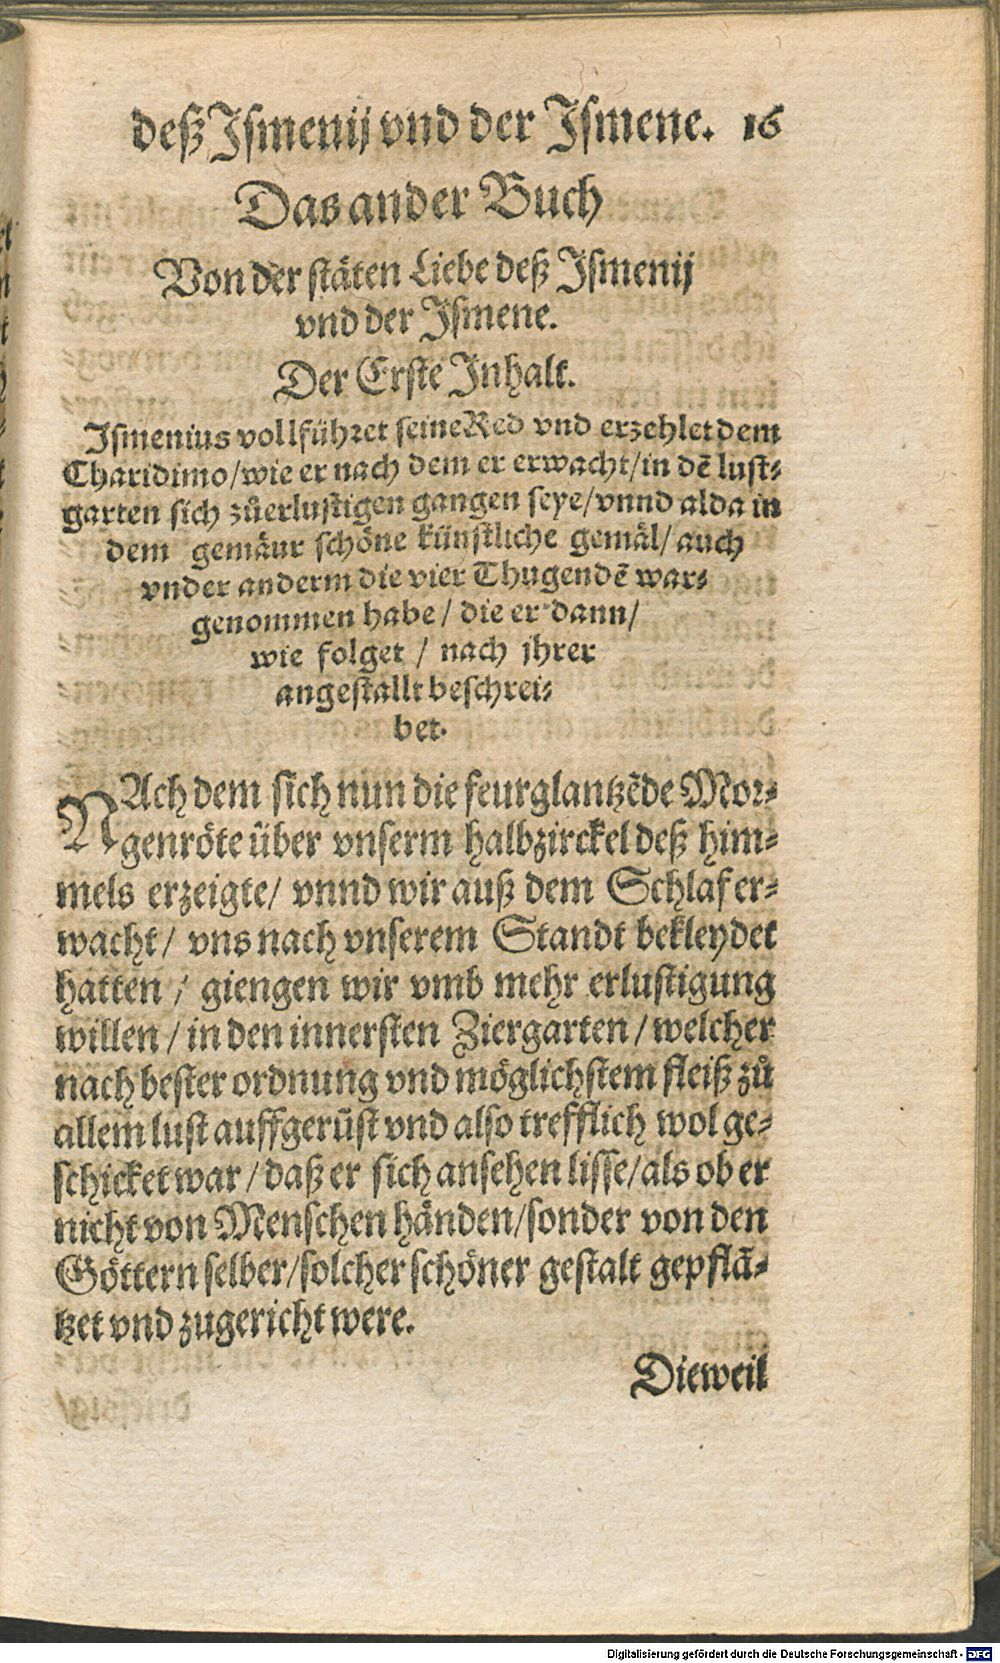 deß Ismenij vnd der Ismene. 16
Das ander Buch
Von der stäten Liebe deß Ismenij
vnd der Ismene.
Der Erste Inhalt.
Ismenius vollführet seine Red vnd erzehlet dem
Charidimo/wie er nach dem er erwacht/in dē lust-
garten sich zůerlustigen gangen seye/vnnd alda in
dem gemäur schöne künstliche gemäl/auch
vnder anderm die vier Thugendē war-
genommen habe/die er dann/
wie folget/nach jhrer
angestallt beschrei-
bet.
NAch dem sich nun die feurglantzēde Mor-
genröte über vnserm halbzirckel deß him-
mels erzeigte/ vnnd wir auß dem Schlaf er-
wacht/ vns nach vnserem Standt bekleydet
hatten/ giengen wir vmb mehr erlustigung
willen/in den innersten Ziergarten/welcher
nach bester ordnung vnd möglichstem fleiß zů
allem lust auffgerüst vnd also trefflich wol ge-
schicket war/daß er sich ansehen lisse/als ob er
nicht von Menschen händen/sonder von den
Göttern selber/solcher schöner gestalt gepflā-
tzet vnd zugericht were.
Dieweil
Digitalisierung gefördert durch die Deutsche Forschungsgemeinschaft - DFG